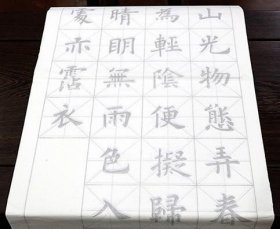 山光物態弄春
為輕陰便擬歸
晴明無雨色入
處亦霑衣